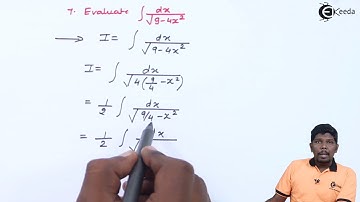 7. Evaluate ∫ dx/√(9-4x²)
→ I = ∫ dx/√(9-4x²)
I = ∫ dx/√(4(9/4-x²))
= 1/2 ∫ dx/√(9/4-x²)
= 1/2 ∫ dx/√
Ekeeda